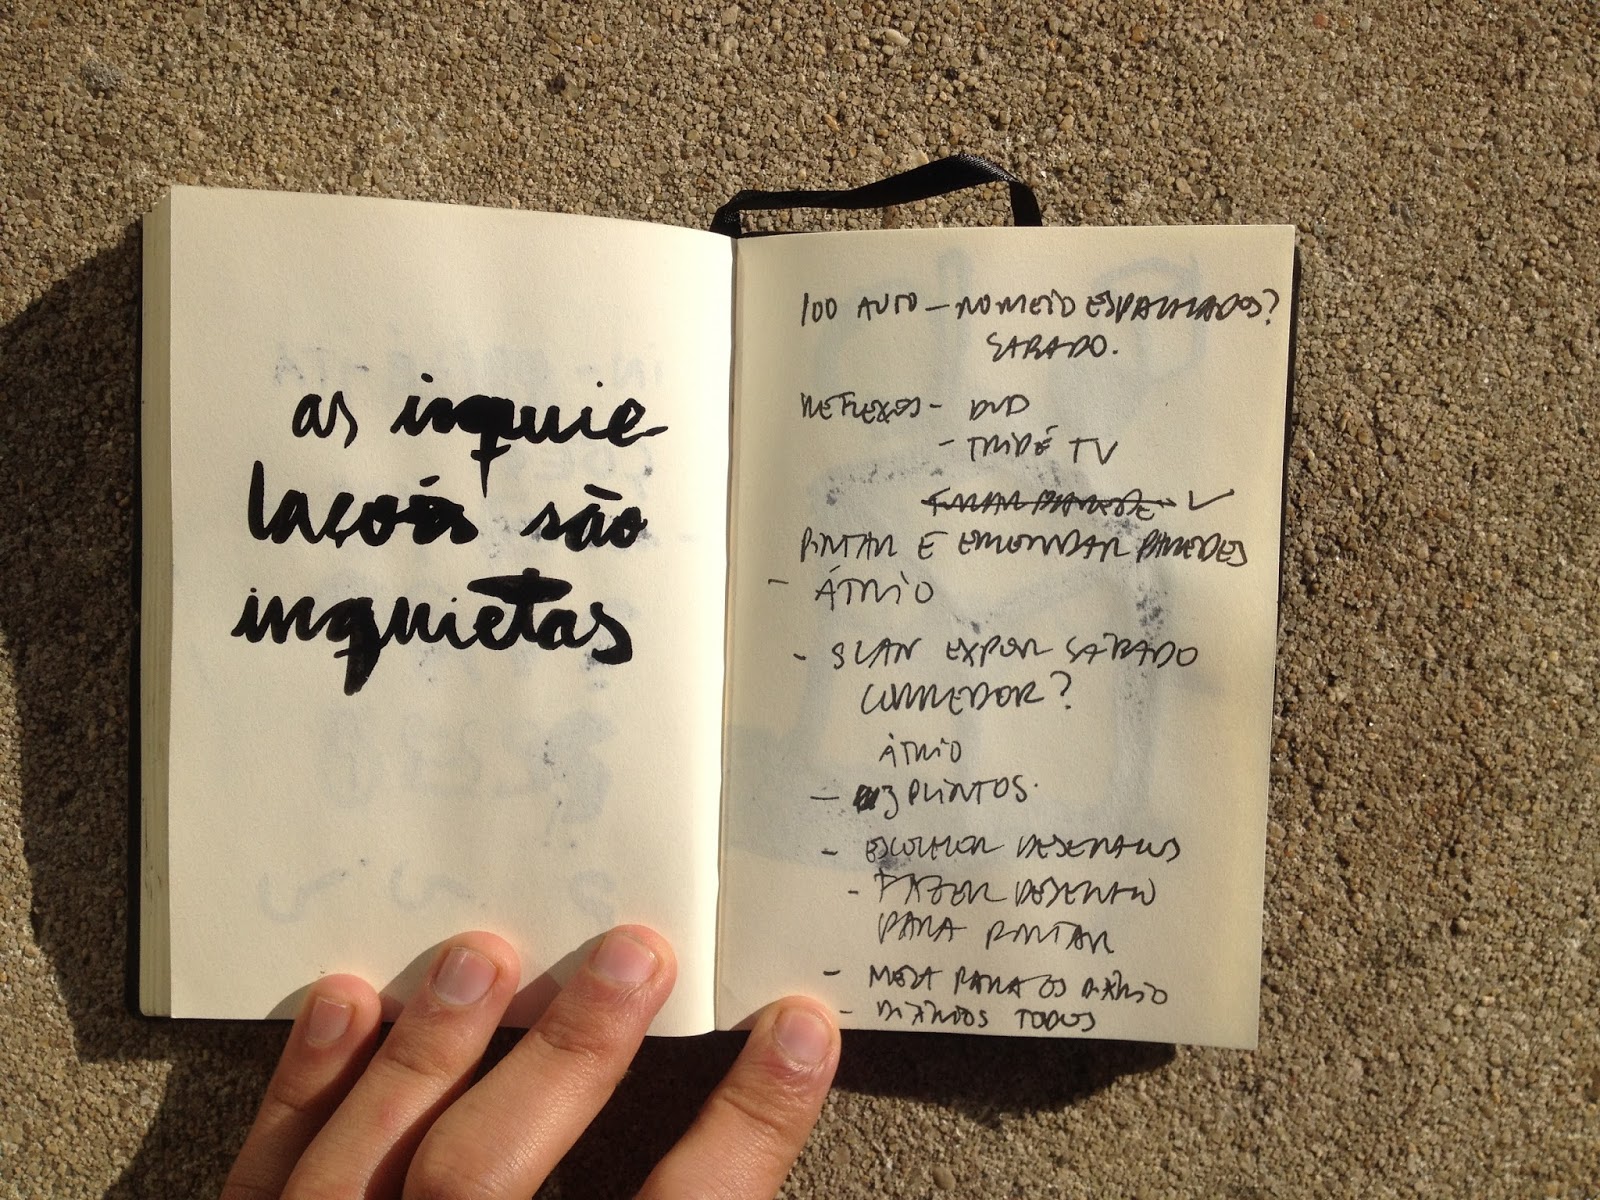 as inquie
lações são
inquietas
100 AUTO — NO MEIO ESPALHADOS?
SABADO.
REFLEXOS - DVD
- TRIPÉ TV
PINTAR E ENCOMENDAR PAREDES
- ÁTRIO
- SCAN EXPOR SÁBADO
CORREDOR?
ÁTRIO
— 3 PLINTOS.
- ESCOLHER DESENHOS
- FAZER DESENHO
PARA PINTAR
- MESA PARA OS DIÁRIO
- DIÁRIOS TODOS